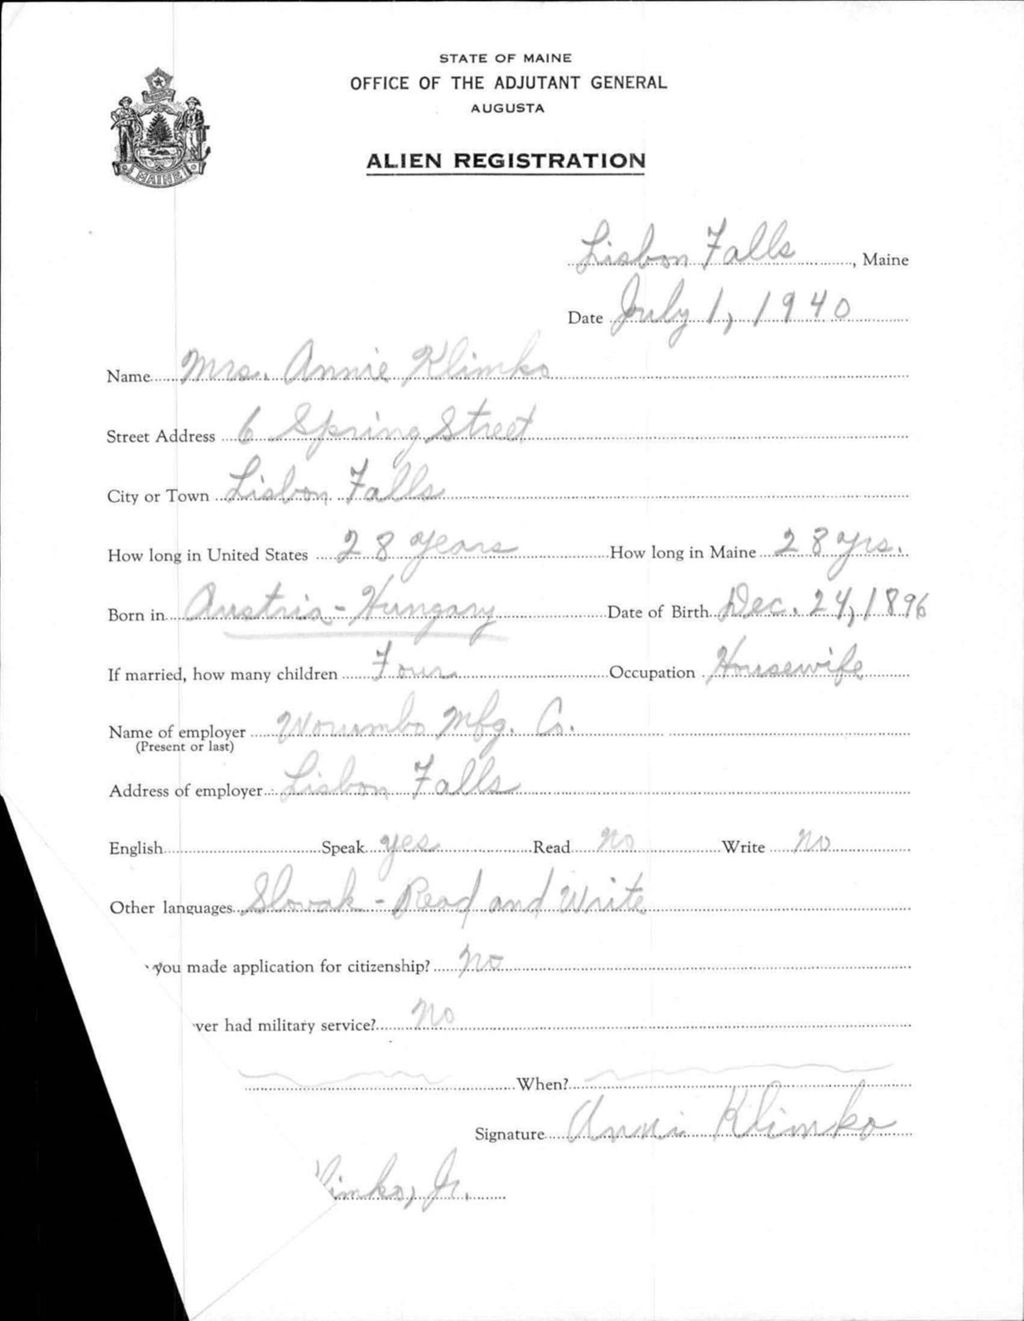 STATE OF MAINE
OFFICE OF THE ADJUTANT GENERAL
AUGUSTA
ALIEN REGISTRATION
MAINE
Lisbon Falls, Maine
Date July 1, 1940
Name Mrs. Annie Klimko
Street Address 6 Spring Street
City or Town Lisbon Falls
How long in United States 28 years How long in Maine 28 yrs.
Born in Austria-Hungary Date of Birth Dec. 24, 1896
If married, how many children Four Occupation Housewife
Name of employer Worumbo Mfg. Co.
(Present or last)
Address of employer Lisbon Falls
English Speak yes Read No Write No
Other languages Slovak - Read and Write
you made application for citizenship? No
ver had military service? No
When?
Signature Annie Klimko
limko, Jr.